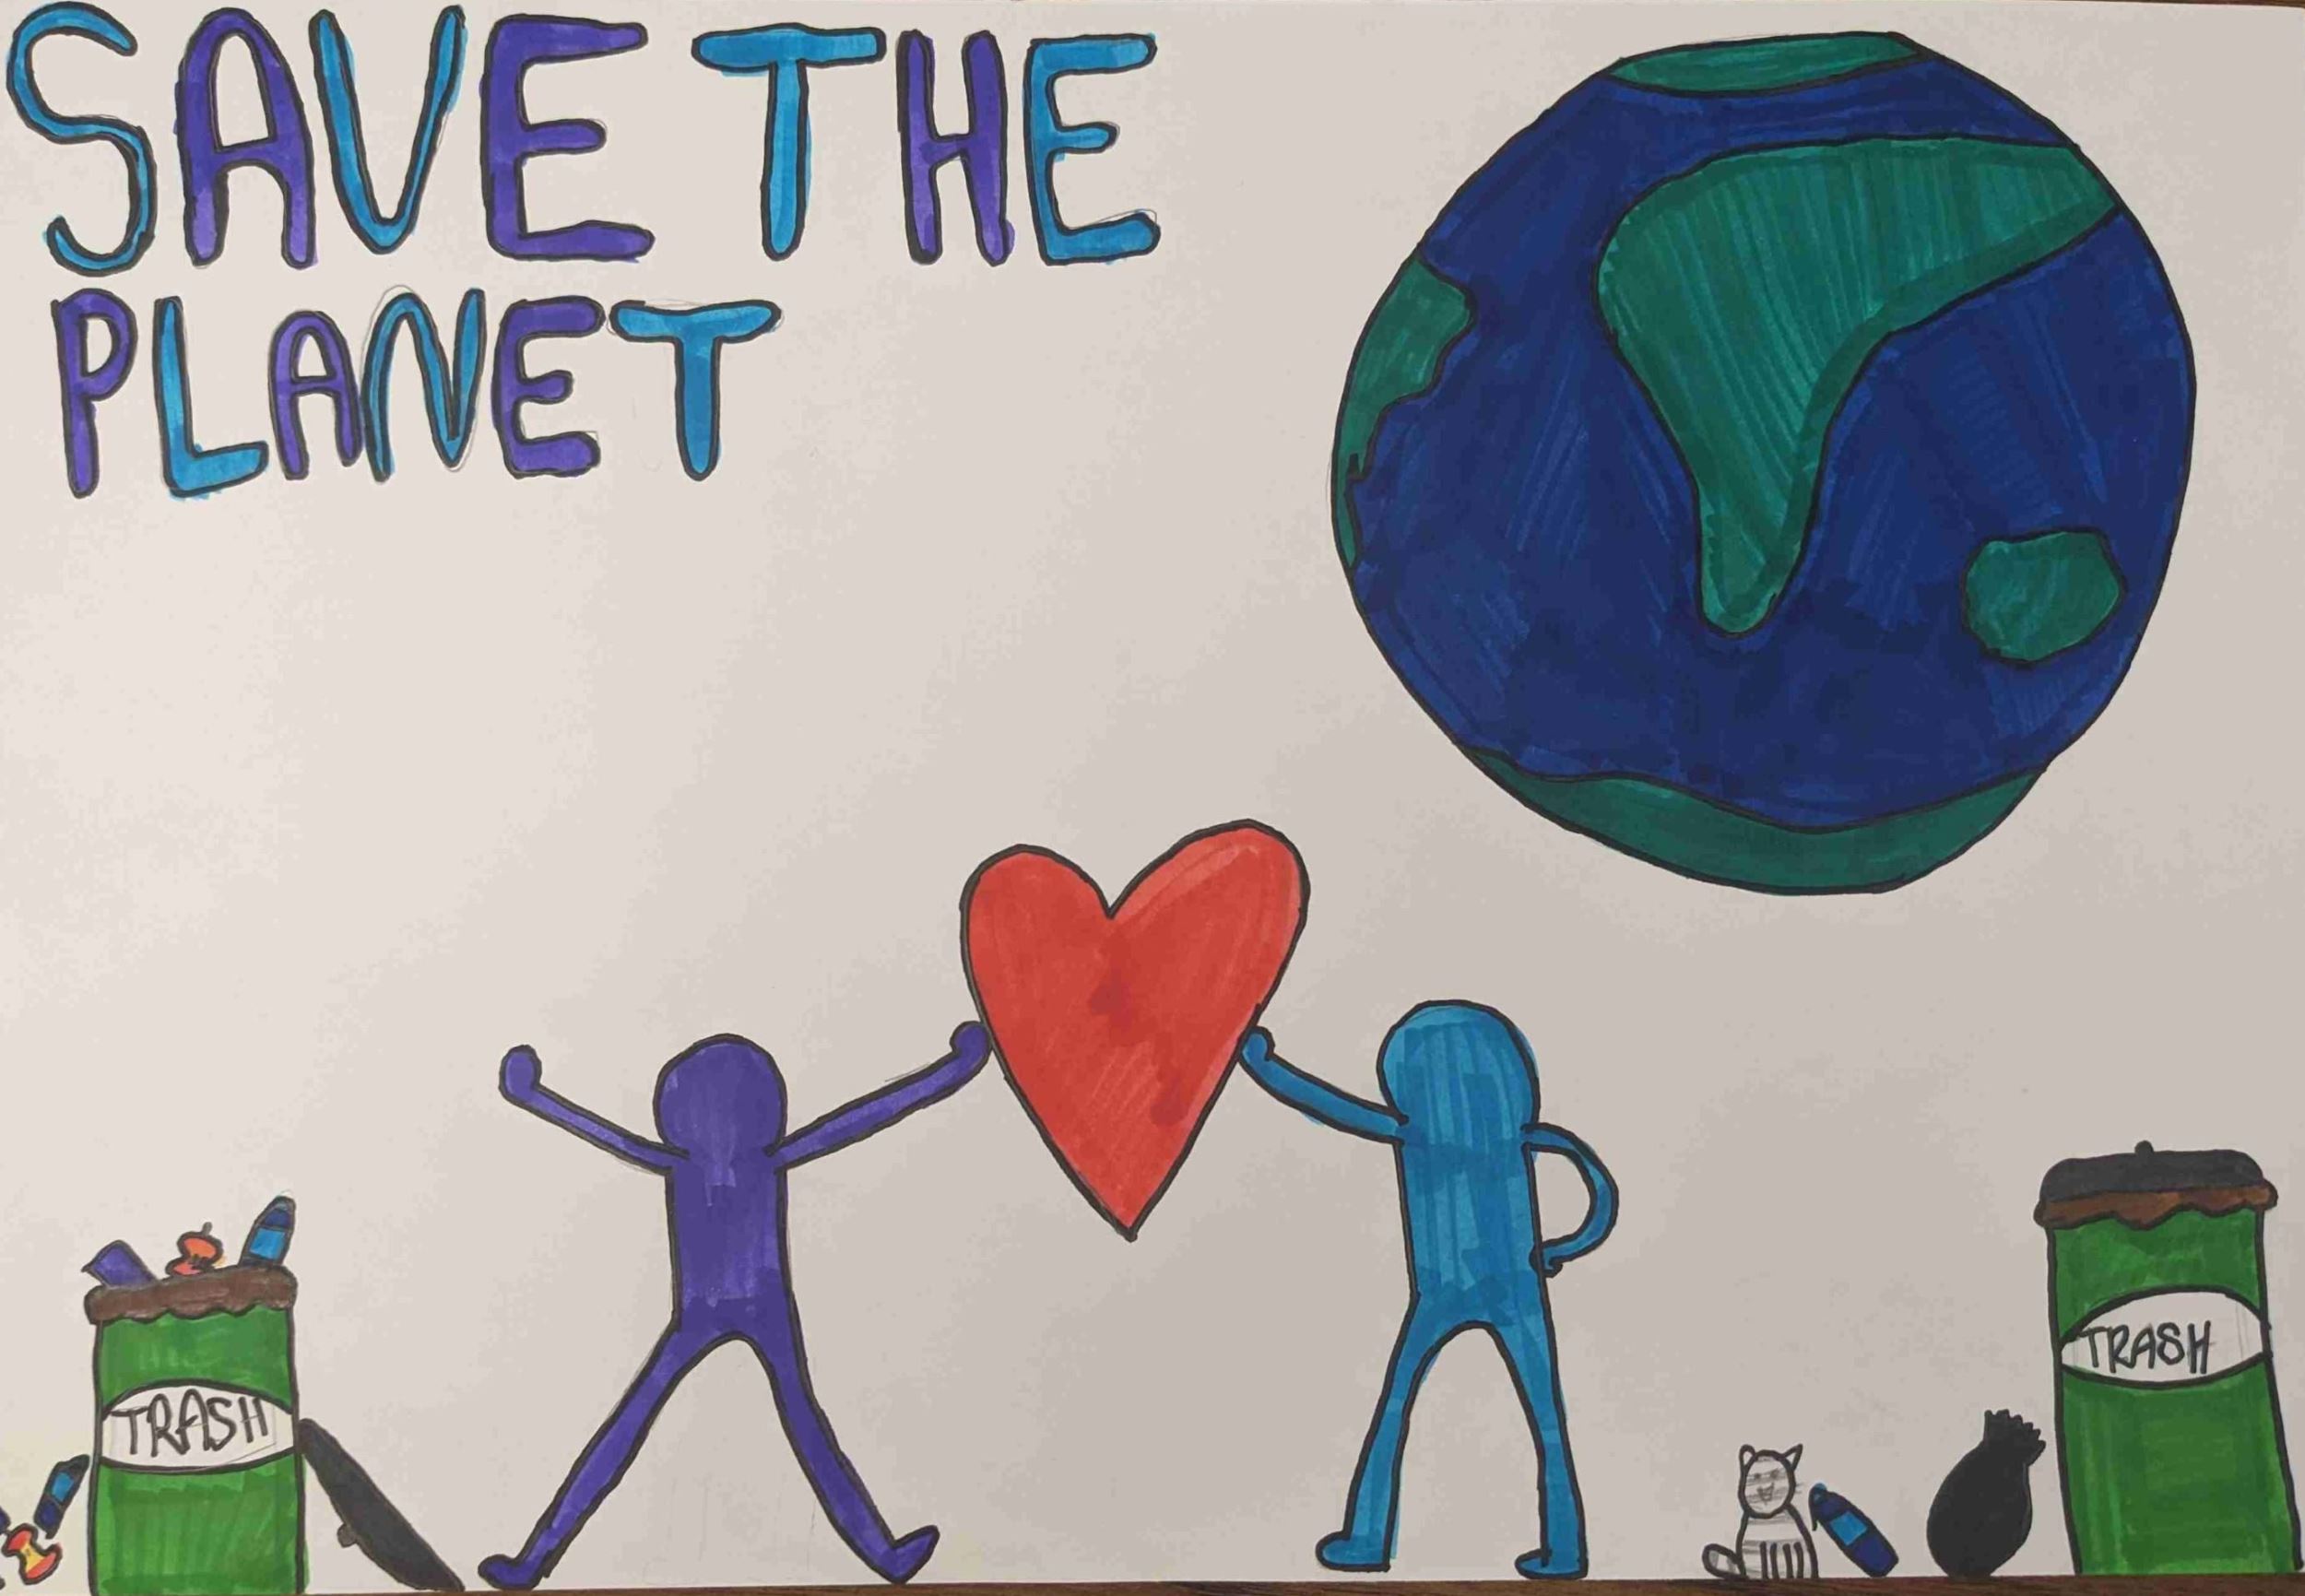 SAVE THE
PLANET
TRASH
TRASH